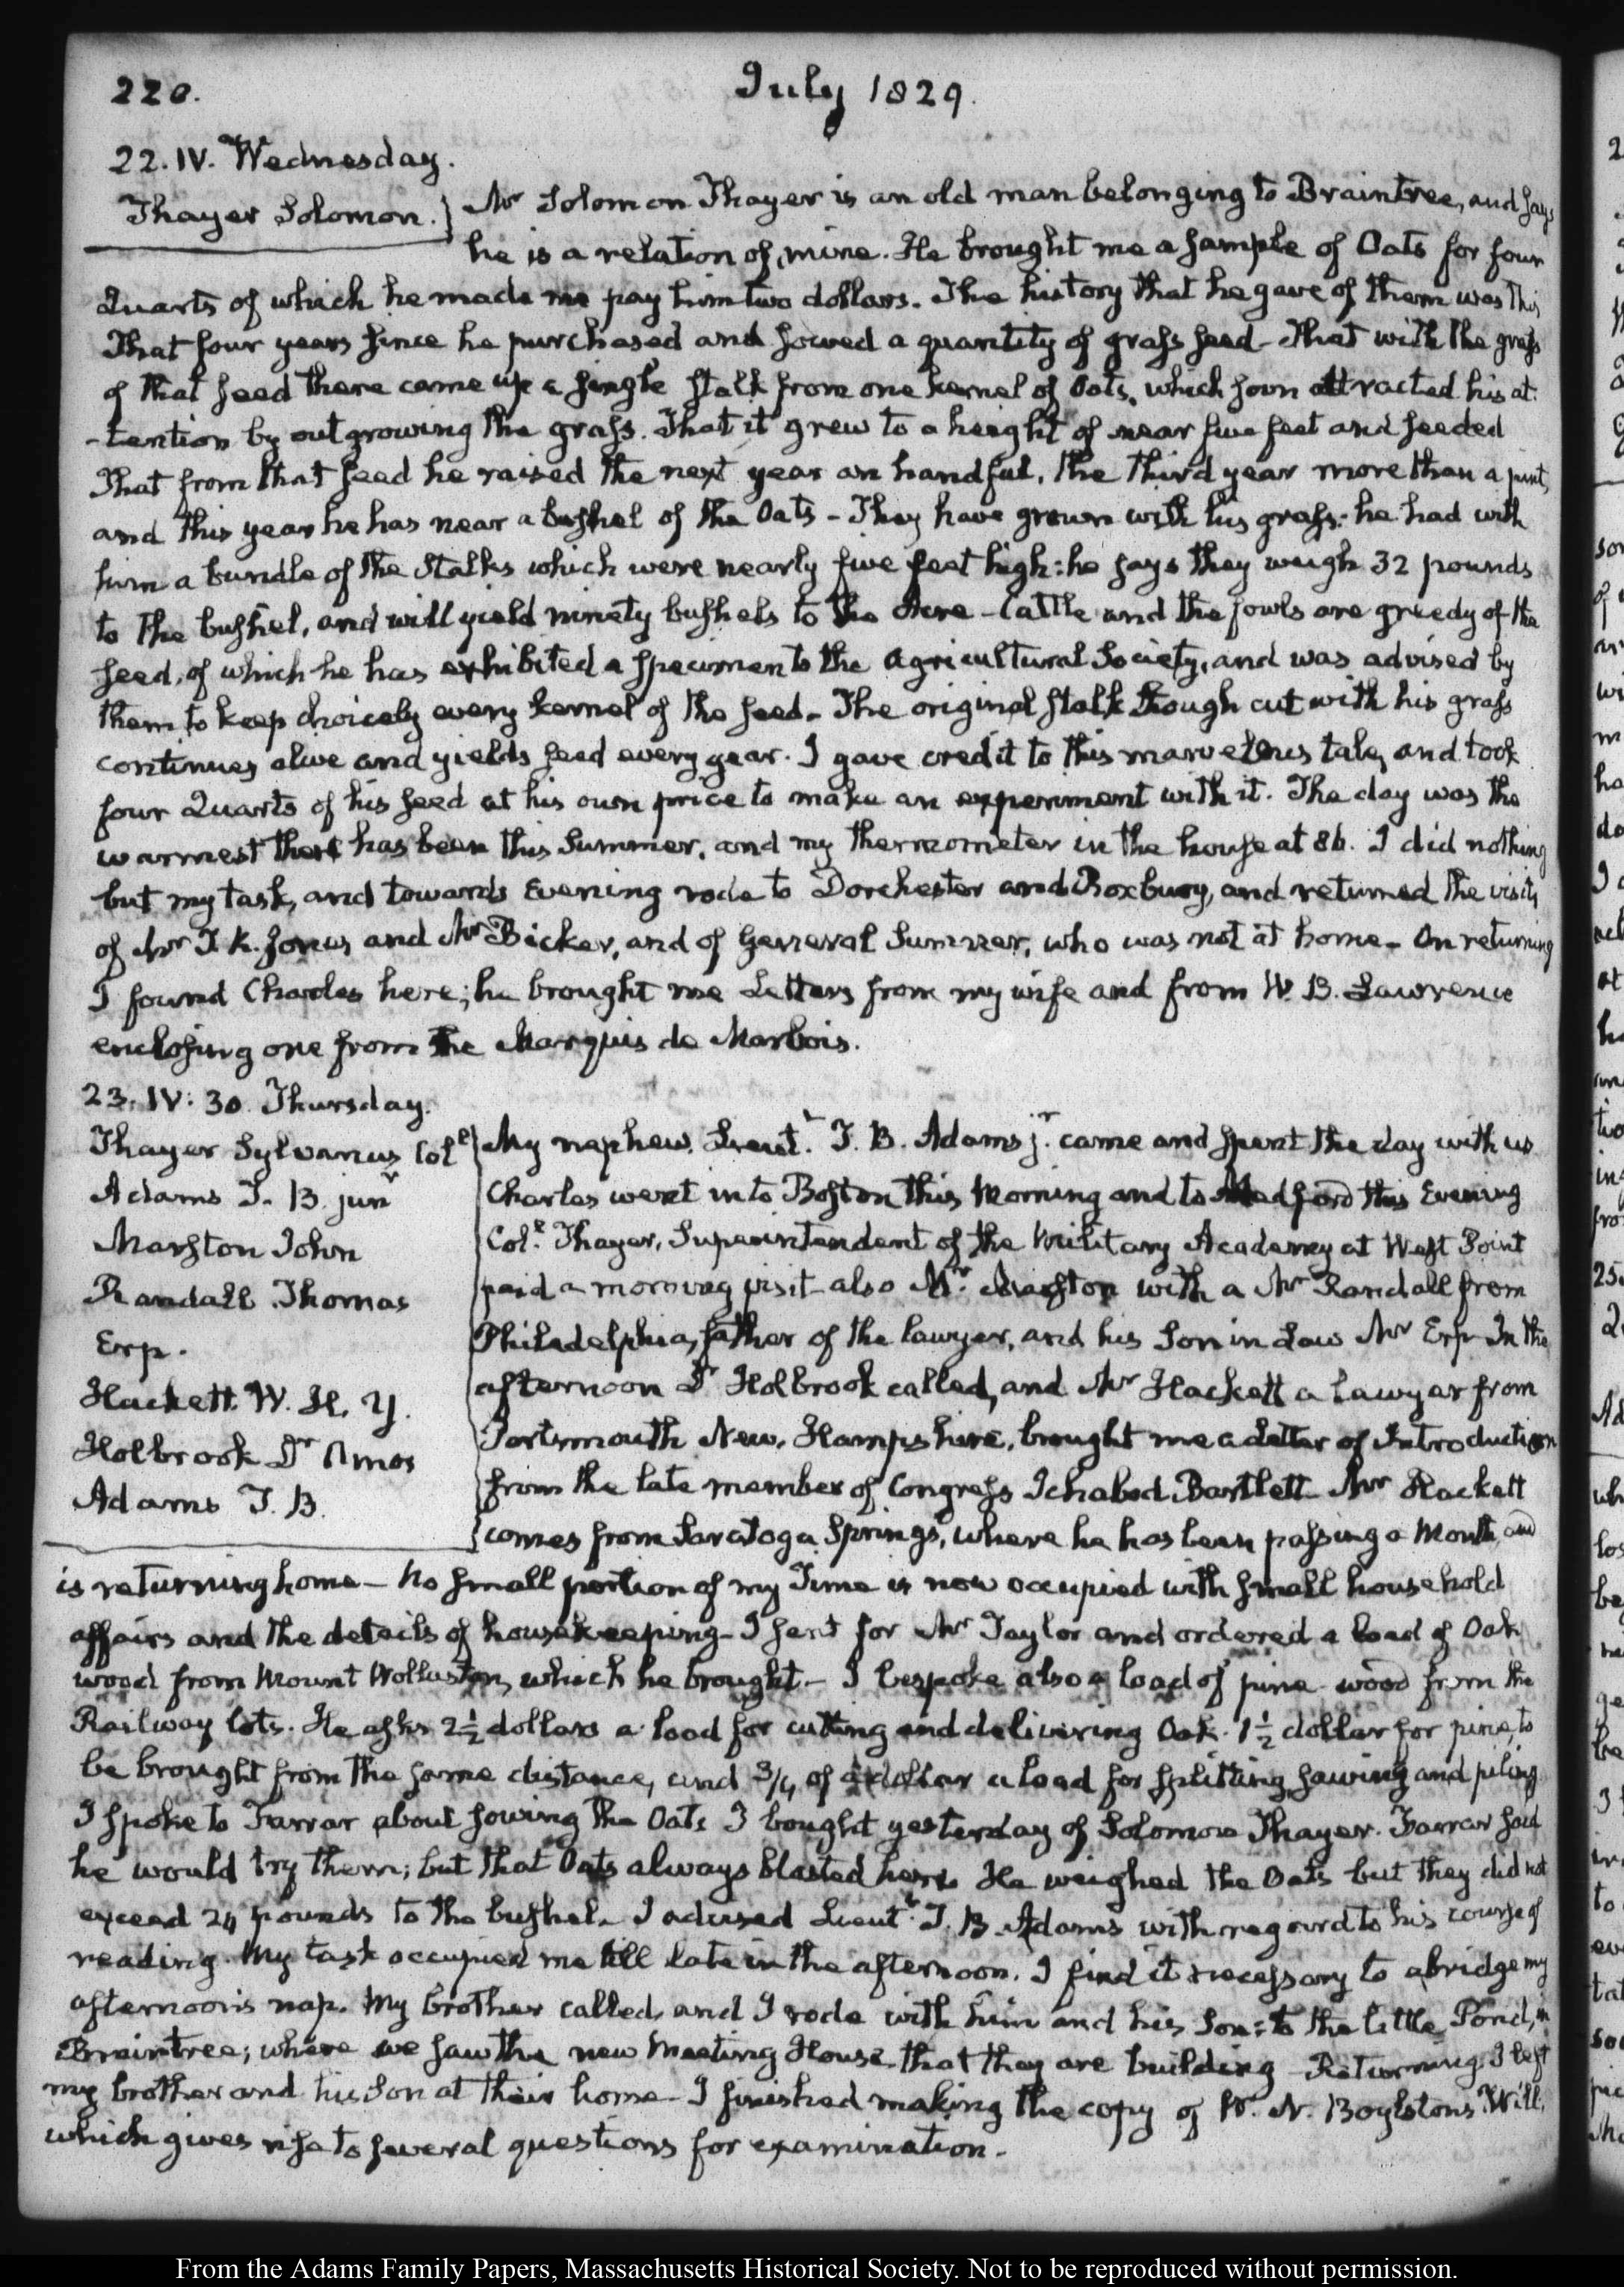 220.
July 1829.
22. IV. Wednesday.
Thayer Solomon.
Mr Solomon Thayer is an old man belonging to Braintree, and says
he is a relation of mine. He brought me a sample of Oats for four
Quarts of which he made me pay him two dollars. The history that he gave of them was this
That four years since he purchased and sowed a quantity of grass seed - That with the grass
of that seed there came up a single stalk from one kernel of Oats, which soon attracted his at-
-tention by outgrowing the grass. That it grew to a height of near five feet and seeded
That from that seed he raised the next year an handful, the third year more than a pint,
and this year he has near a bushel of the Oats - They have grown with his grass: he had with
him a bundle of the Stalks which were nearly five feet high: he says they weigh 32 pounds
to the bushel, and will yield ninety bushels to the Acre - Cattle and the fowls are greedy of the
seed, of which he has exhibited a specimen to the Agricultural Society, and was advised by
them to keep choicely every kernel of the seed - The original stalk though cut with his grass
continues alive and yields seed every year. I gave credit to this marvelous tale, and took
four Quarts of his seed at his own price to make an experiment with it. The day was the
warmest there has been this Summer, and my thermometer in the house at 86. I did nothing
but my task, and towards Evening rode to Dorchester and Roxbury, and returned the visits
of Mr T. K. Jones and Mr Bicker, and of General Sumner, who was not at home - On returning
I found Charles here; he brought me Letters from my wife and from W. B. Lawrence
enclosing one from the Marquis de Marbois.
23. IV: 30. Thursday.
Thayer Sylvanus Coll
Adams T. B. junr
Marston John
Randall Thomas
Erp.
Hackett W. H. Y.
Holbrook Dr Amos
Adams T. B.
My nephew Lieutt. T. B. Adams jr. came and spent the day with us
Charles went into Boston this Morning and to Medford this Evening
Coll. Thayer, Superintendent of the Military Academy at West Point
paid a morning visit - also Mr. Marston with a Mr Randall from
Philadelphia, father of the lawyer, and his Son in Law Mr Erp - In the
afternoon Dr Holbrook called, and Mr Hackett a lawyer from
Portsmouth New-Hampshire, brought me a Letter of Introduction
from the late member of Congress Ichabod Bartlett - Mr Hackett
comes from Saratoga Springs, where he has been passing a Month, and
is returning home - No small portion of my Time is now occupied with small household
affairs and the details of housekeeping - I sent for Mr Taylor and ordered a load of Oak
wood from Mount Wollaston, which he brought - I bespoke also a load of pine wood from the
Railway lots. He asks 2½ dollars a load for cutting and delivering Oak. 1½ dollar for pine, to
be brought from the same distance, and 3/4 of a dollar a load for splitting sawing and piling
I spoke to Farrar about sowing the Oats I bought yesterday of Solomon Thayer. Farrar said
he would try them; but that Oats always blasted here. He weighed the Oats but they did not
exceed 24 pounds to the bushel. I advised Lieutt. T. B. Adams with regard to his course of
reading. My task occupied me till late in the afternoon. I find it necessary to abridge my
afternoon's nap. My brother called, and I rode with him and his Son to the little Pond, in
Braintree; where we saw the new Meeting House that they are building - Returning I left
my brother and his Son at their home - I finished making the copy of W. N. Boylston's Will,
which gives rise to several questions for examination.
From the Adams Family Papers, Massachusetts Historical Society. Not to be reproduced without permission.